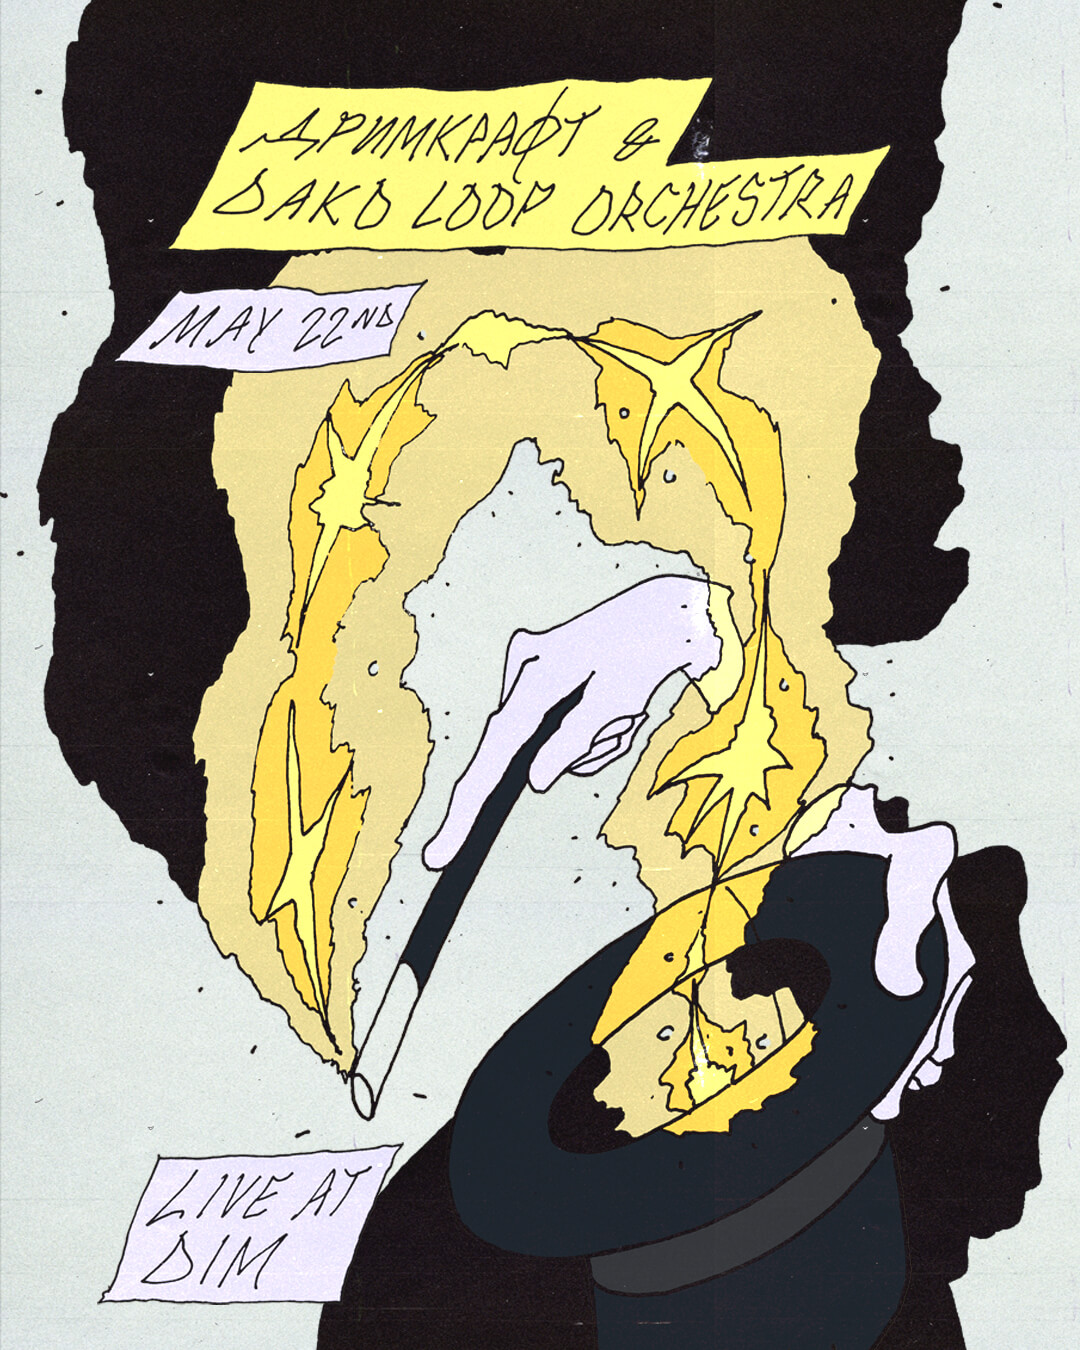 ДРИМКРАФТ &
DAKO LOOP ORCHESTRA
MAY 22ND
LIVE AT
DIM